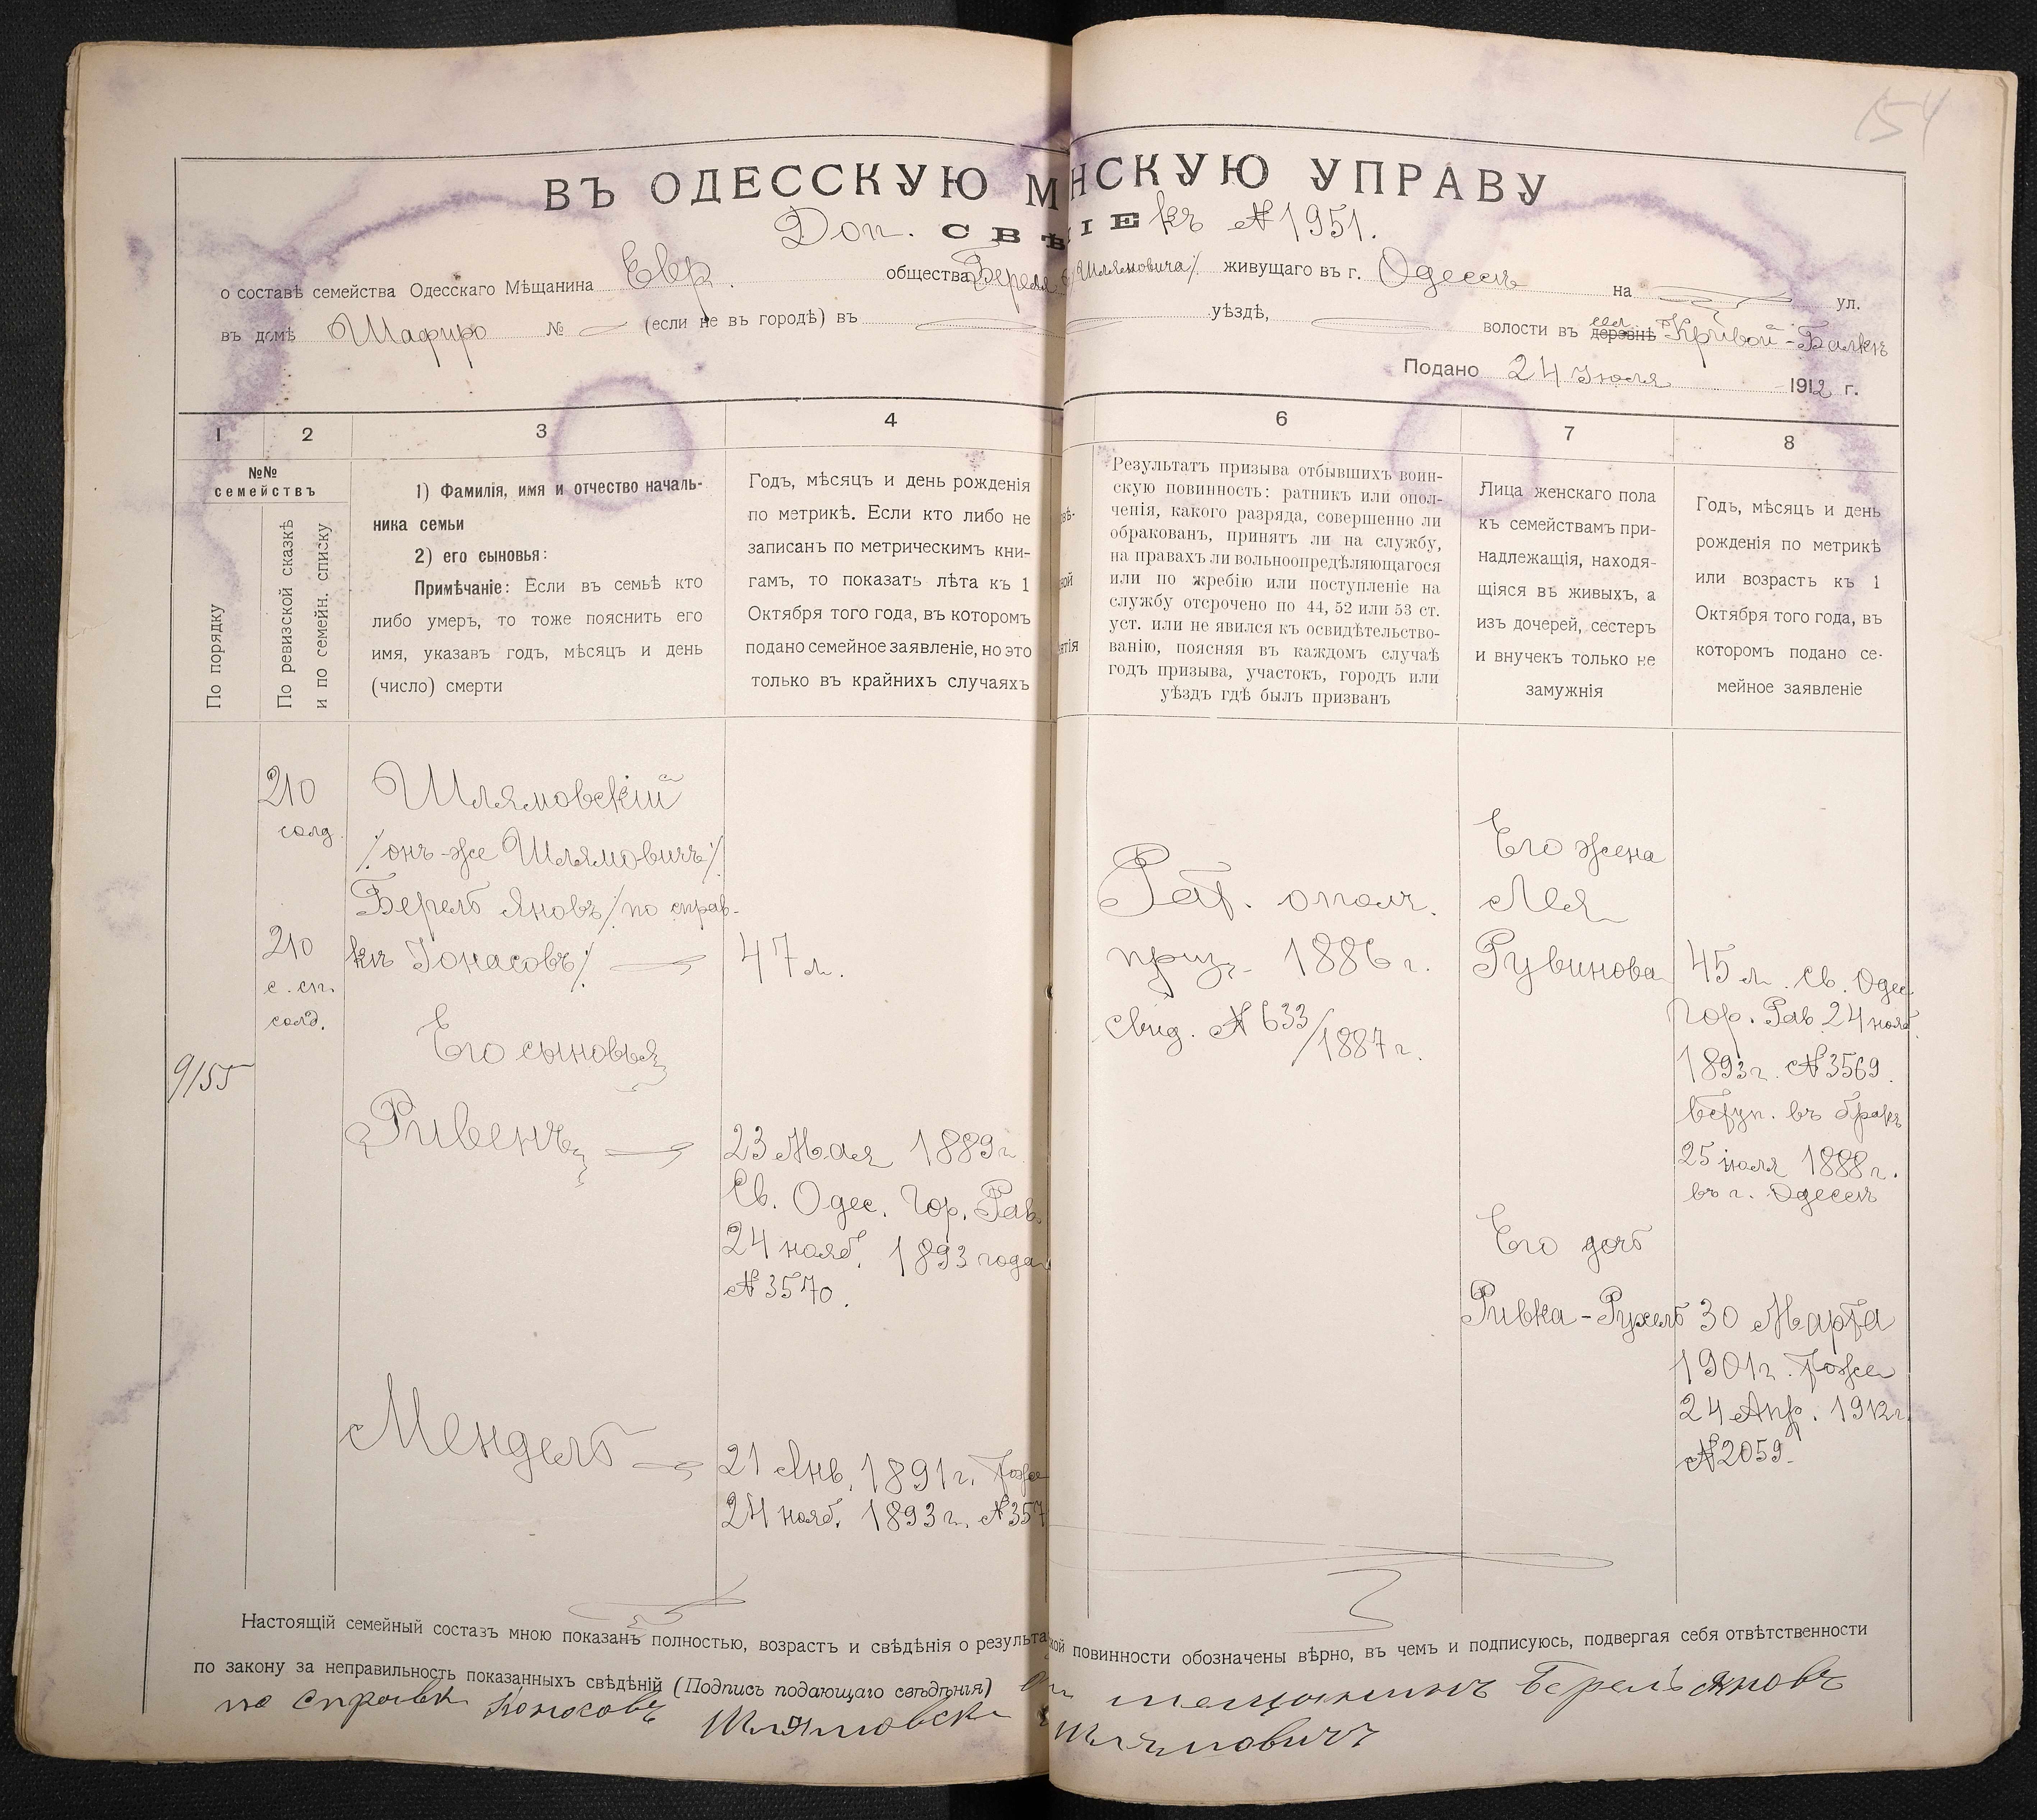 154
ВЪ ОДЕССКУЮ М НСКУЮ УПРАВУ
Доп. СВѢ IЕ къ № 1951.
о составѣ семейства Одесскаго Мѣщанина Евр. общества Береля Шлямовича/ живущаго въ г. Одессѣ на ул.
въ домѣ Шафиро № (если не въ городѣ) въ уѣздѣ, волости въ деревнѣ сел. Кривой-Балкѣ
Подано 24 Июля 1912 г.
1 2 3 4 6 7 8
№№
семействъ
По порядку
По ревизской сказкѣ
и по семейн. списку
1) Фамилія, имя и отчество началь-
ника семьи
2) его сыновья:
Примѣчаніе: Если въ семьѣ кто
либо умеръ, то тоже пояснить его
имя, указавъ годъ, мѣсяцъ и день
(число) смерти
Годъ, мѣсяцъ и день рожденія
по метрикѣ. Если кто либо не
записанъ по метрическимъ кни-
гамъ, то показать лѣта къ 1
Октября того года, въ которомъ
подано семейное заявленіе, но это
только въ крайнихъ случаяхъ
Результатъ призыва отбывшихъ воин-
скую повинность: ратникъ или опол-
ченія, какого разряда, совершенно ли
обракованъ, принятъ ли на службу,
на правахъ ли вольноопредѣляющагося
или по жребію или поступленіе на
службу отсрочено по 44, 52 или 53 ст.
уст. или не явился къ освидѣтельство-
ванію, поясняя въ каждомъ случаѣ
годъ призыва, участокъ, городъ или
уѣздъ гдѣ былъ призванъ
Лица женскаго пола
къ семействамъ при-
надлежащія, находя-
щіяся въ живыхъ, а
изъ дочерей, сестеръ
и внучекъ только не
замужнія
Годъ, мѣсяцъ и день
рожденія по метрикѣ
или возрастъ къ 1
Октября того года, въ
которомъ подано се-
мейное заявленіе
210
солд.
210
с. сп.
солд.
9/155
Шлямовскій
/онъ-же Шлямовичъ/
Берель Яновъ/по справ-
кѣ Іонасовъ/
47 л.
Его сыновья
Ривенъ
23 Мая 1889 г
Св. Одес. Гор. Рав.
24 нояб. 1893 года
№ 3570.
Мендель
21 Янв. 1891 г. Тоже
24 нояб. 1893 г. № 357
Рат. ополч.
приз. 1886 г.
свид. № 633/1887 г.
Его жена
Лея
Рувинова
45 л. Св. Одес
Гор. Рав 24 нояб.
1893 г. № 3569.
вступ. въ бракъ
25 июля 1888 г.
въ г. Одессѣ
Его дочь
Ривка-Рухель
30 Марта
1901 г. Тоже
24 Апр. 1912 г.
№ 2059.
Настоящій семейный составъ мною показанъ полностью, возрастъ и свѣдѣнія о результа кой повинности обозначены вѣрно, въ чемъ и подписуюсь, подвергая себя отвѣтственности
по закону за неправильность показанныхъ свѣдѣній (Подпись подающаго свѣдѣнія) мещанинъ Берель Яновъ
по справки Іоносовъ Шлямовски Шлямовичъ